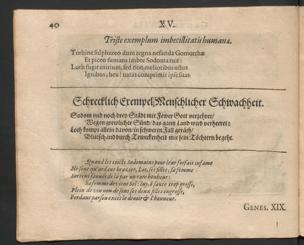 40
XV.
Triste exemplum imbecillitatis humanæ.
Turbine sulphureo dum regna nefanda Gomorrhæ
Et piceo fumans imbre Sodoma ruit:
Loth fugit exitium, sed non melioribus usus
Ignibus, heu! natas comprimit ipse suas.
Schrecklich Exempel Menschlicher Schwachheit.
Sodom und noch drey Städt mit Fewer Gott verzehret/
Wegen grewlicher Sünd/ das gantz Land wird verheeret:
Loth kompt allein davon/ in schweren Fall geräth/
Blutschand durch Trunckenheit mit sein Töchtern begeht.
Quand les toicts Sodomains pour leur forfait infame
Ne sont qu'ardant brasier, Lot, ses filles, sa femme
Sortent sauvés de là par un rare bonheur:
Sa femme devient Sel: luy,
Plein de vin
Perdans par son excés le devoir & l'honneur.
GENES. XIX.